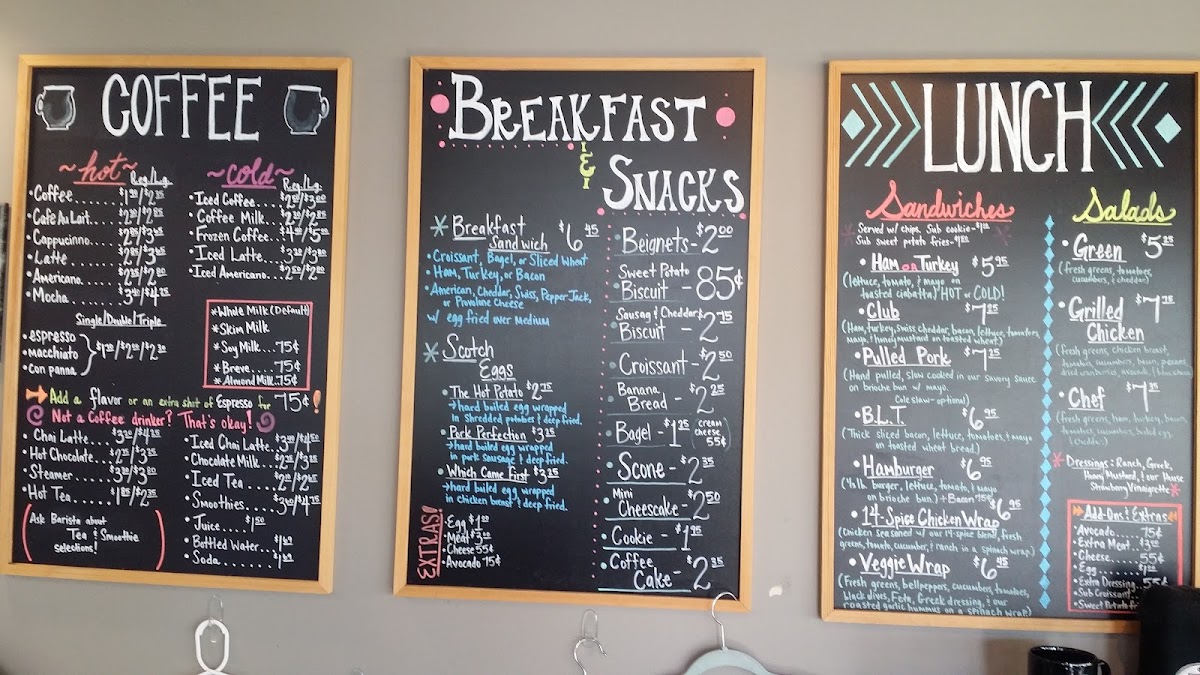 COFFEE
~hot~
Reg/Lg.
Coffee
Cafe Au Lait
Cappucinno
Latte
Americano
Mocha
Single/Double/Triple
espresso
macchiato
con panna
~cold~
Reg/Lg.
Iced Coffee
Coffee Milk
Frozen Coffee
Iced Latte
Iced Americano
*Whole Milk (Default)
*Skim Milk
*Soy Milk...75¢
*Breve......75¢
*Almond Milk..75¢
Add a flavor or an extra shot of Espresso for 75¢!
Not a Coffee drinker? That's okay!
Chai Latte
Hot Chocolate
Steamer
Hot Tea
(Ask Barista about
Tea & Smoothie
selections!)
Iced Chai Latte
Chocolate Milk
Iced Tea
Smoothies
Juice.....$1.50
Bottled Water
Soda
BREAKFAST
&
SNACKS
*Breakfast
Sandwich $6.45
Croissant, Bagel, or Sliced Wheat
Ham, Turkey, or Bacon
American, Cheddar, Swiss, Pepper-Jack,
or Provolone Cheese
w/ egg fried over medium
*Scotch
Eggs
The Hot Potato $2.75
→hard boiled egg wrapped
in shredded potatoes & deep fried.
Pork Perfection $3.15
→hard boiled egg wrapped
in pork sausage & deep fried.
Which Came First $3.35
→hard boiled egg wrapped
in chicken breast & deep fried.
EXTRAS!
Egg
Meat
Cheese 55¢
Avocado 75¢
Beignets-$2.00
Sweet Potato
Biscuit-85¢
Sausg & Cheddar
Biscuit - $2.75
Croissant-$2.50
Banana
Bread - $2.25
Bagel - $1.25 cream cheese 55¢
Scone - $2.35
Mini
Cheesecake-$2.50
Cookie - $1.95
Coffee
Cake- $2.35
LUNCH
Sandwiches
*Served w/ chips. Sub cookie-
Sub sweet potato fries-
Ham or Turkey $5.95
(lettuce, tomato, & mayo on
toasted ciabatta) HOT or COLD!
Club $7.25
(Ham, turkey, swiss, cheddar, bacon, lettuce, tomatoes,
mayo, & honey mustard on toasted wheat.)
Pulled Pork $7.25
(Hand pulled, slow cooked in our savory sauce
on brioche bun w/ mayo.
Cole slaw-optional)
B.L.T. $6.95
(Thick sliced bacon, lettuce, tomatoes, & mayo
on toasted wheat bread.)
Hamburger $6.95
(¼lb. burger, lettuce, tomato, & mayo
on brioche bun.) + Bacon 75¢
14-Spice Chicken Wrap $6.95
(Chicken seasoned w/ our 14-spice blend, fresh
greens, tomato, cucumber, & ranch in a spinach wrap.)
Veggie Wrap $6.45
(Fresh greens, bell peppers, cucumbers, tomatoes,
black olives, Feta, Greek dressing, & our
roasted garlic hummus on a spinach wrap.)
Salads
Green $5.25
(fresh greens, tomatoes,
cucumbers, & cheddar)
Grilled $7.75
Chicken
(fresh greens, chicken breast,
tomatoes, cucumbers, bacon, pecans,
dried cranberries, avocado, &
Chef
(fresh greens, ham, turkey, bacon,
tomatoes, cucumbers, boiled egg,
& cheddar)
*Dressings: Ranch, Greek,
Honey Mustard, & our House
Strawberry Vinaigrette*
Add-Ons & Extras
Avocado......75¢
Extra Meat
Cheese......55¢
Egg
Extra Dressing....55¢
Sub Croissant
Sweet Potato